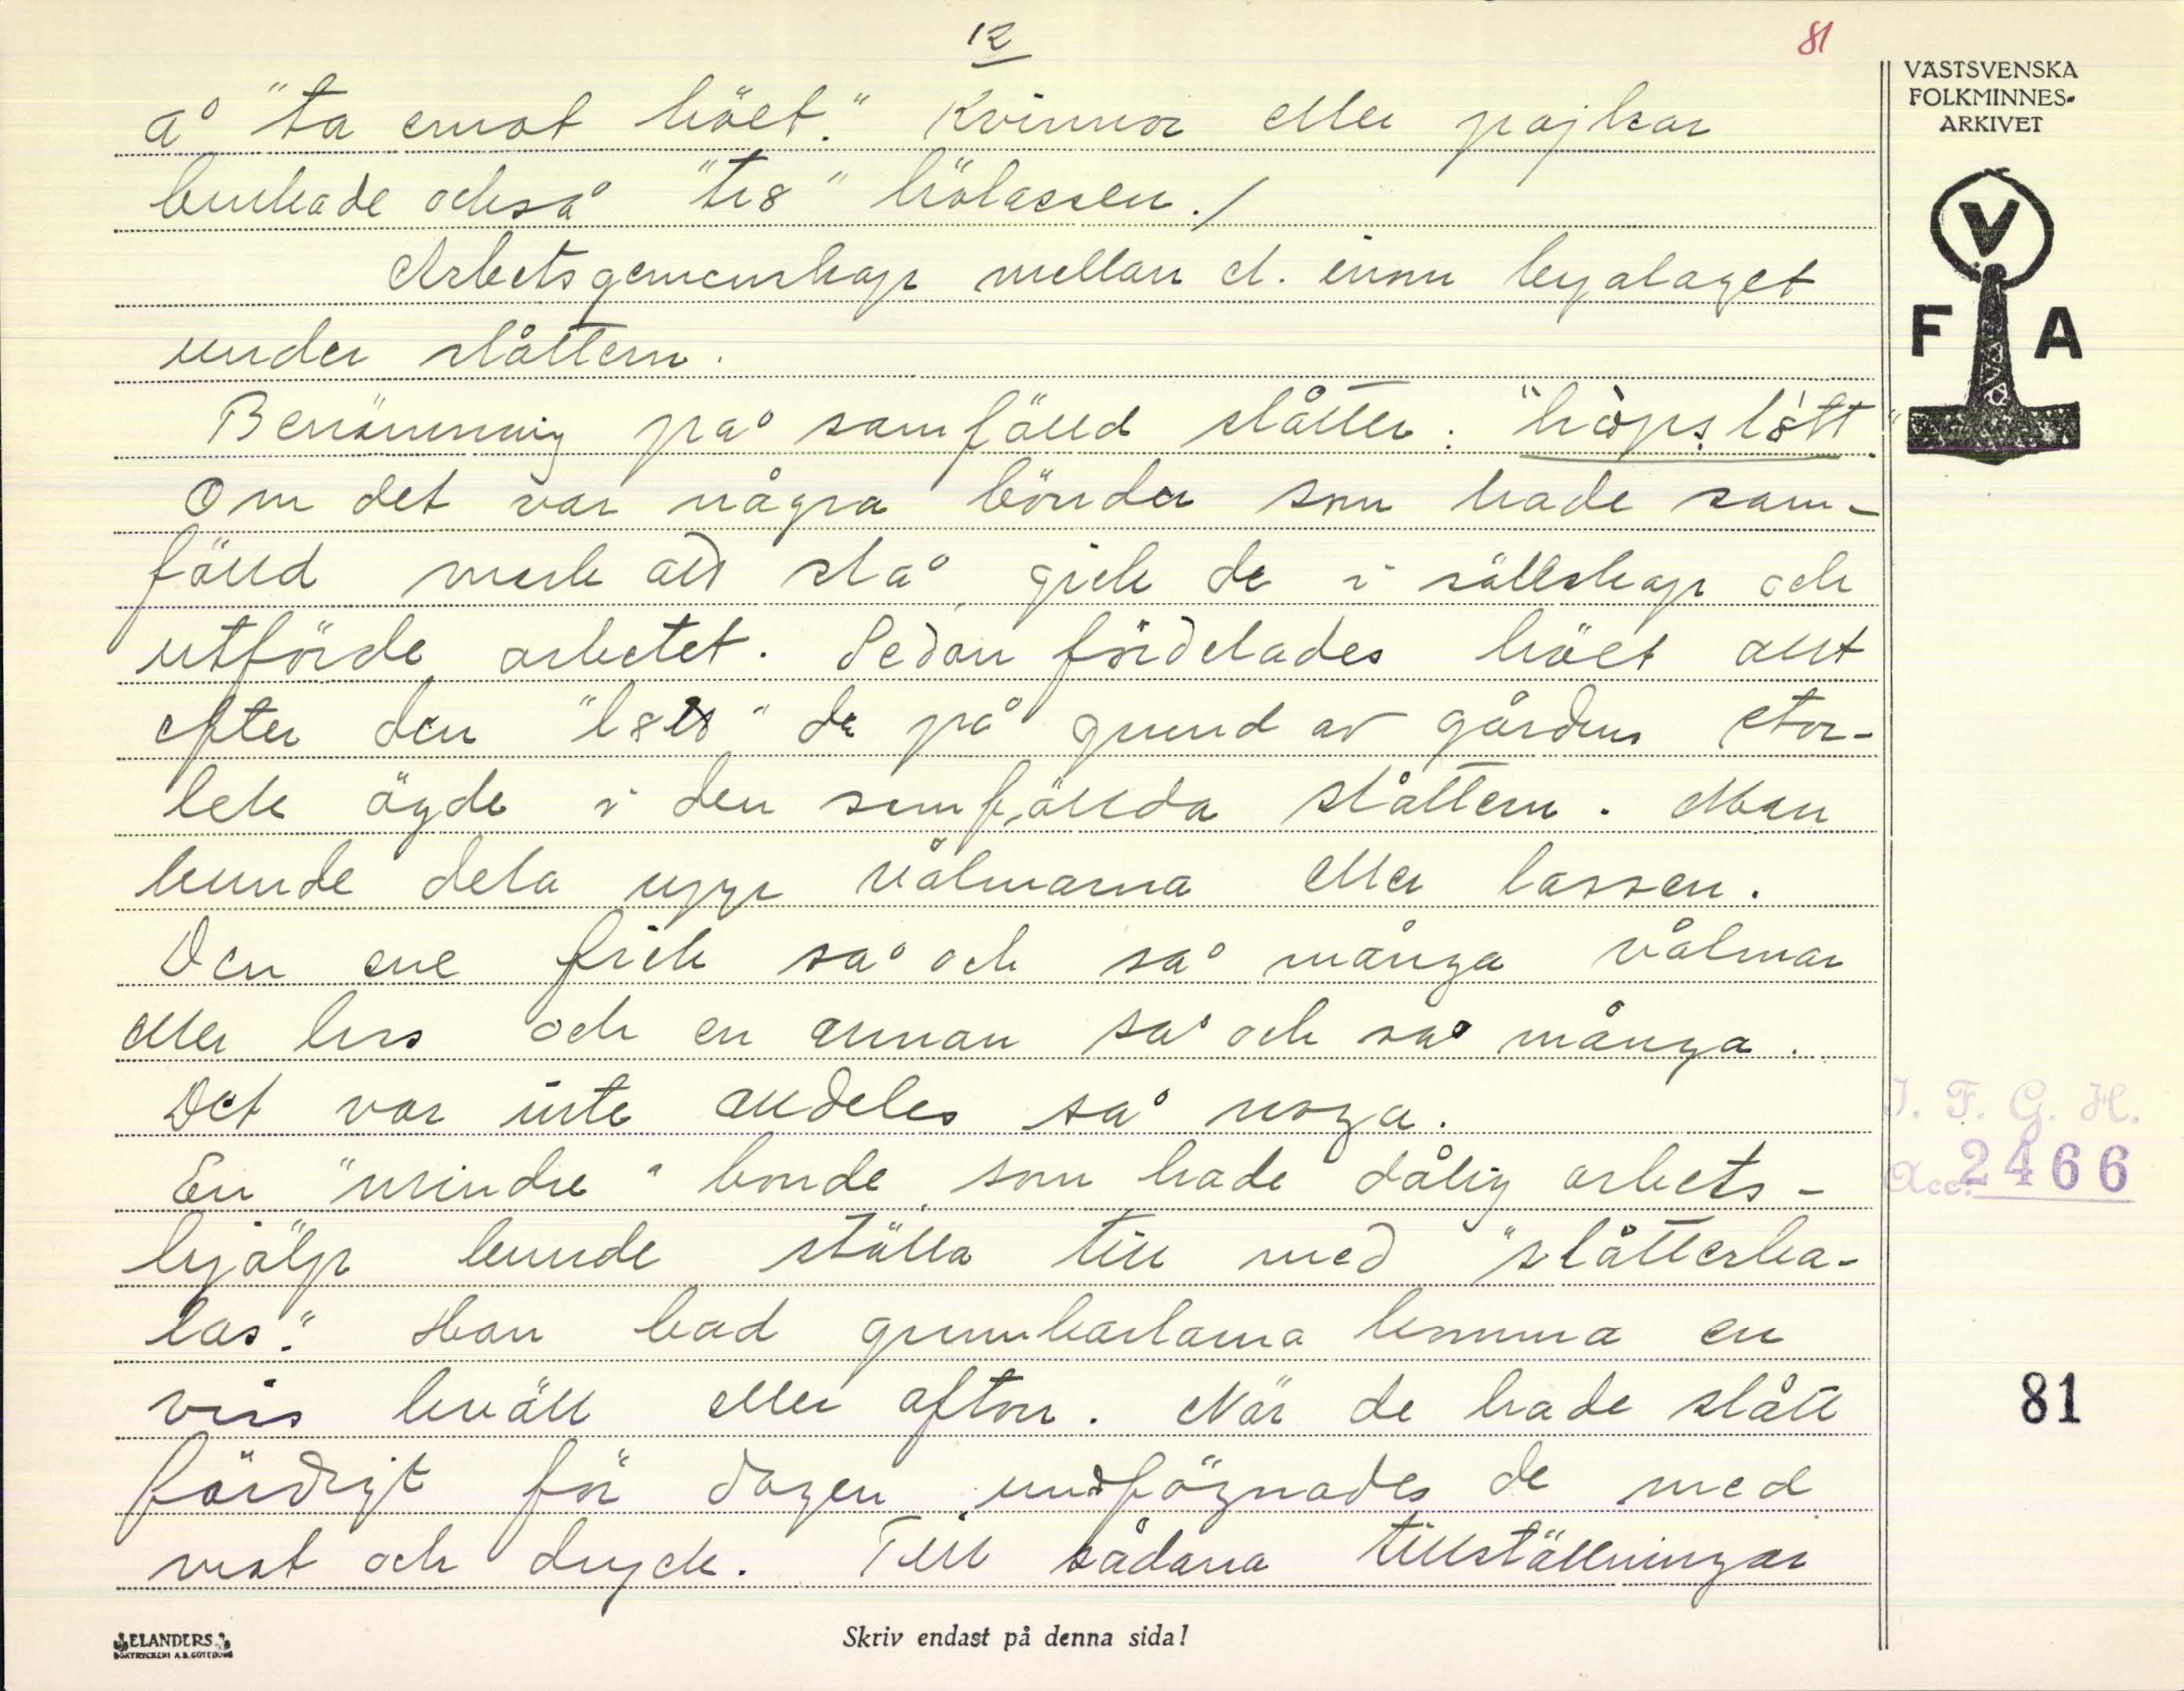 12
81
VÄSTSVENSKA
FOLKMINNES-
ARKIVET
V
F A
å "ta emot höet". Kvinnor eller pojkar
brukade också "tr8" hölassen./
Arbetsgemenskap mellan el. inom byalaget
under slåttern.
Benämning på samfälld slåtter: "höpslått".
Om det var några bönder som hade sam-
fälld mark att slå, gick de i sällskap och
utförde arbetet. Sedan fördelades höet allt
efter den "l8tt" de på grund av gårdens stor-
lek ägde i den samfällda slåttern. Man
kunde dela upp vålmarna eller lassen.
Den ene fick så och så många vålmar
eller lass och en annan så och så många.
Det var inte alldeles så noga.
En "mindre" bonde, som hade dålig arbets-
hjälp kunde ställa till med "slåtterka-
las". Han bad grannkarlarna komma en
viss kväll eller afton. När de hade slått
färdigt för dagen undfägnades de med
mat och dryck. Till sådana tillställningar
I. F. G. H.
Acc. 2466
81
ELANDERS
BOKTRYCKERI A.B. GÖTEBORG
Skriv endast på denna sida!